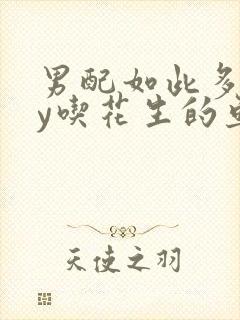 男配如此多
y喫花生的
天使之羽